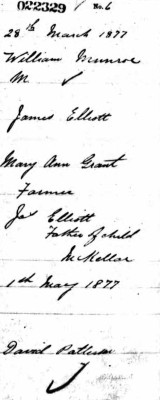 022329 / No. 6
28th March 1877
William Munroe
M ✓
James Elliott
Mary Ann Grant
Farmer
Jas Elliott
Father of child
McKellar
1th May 1877
David Patterson
✓